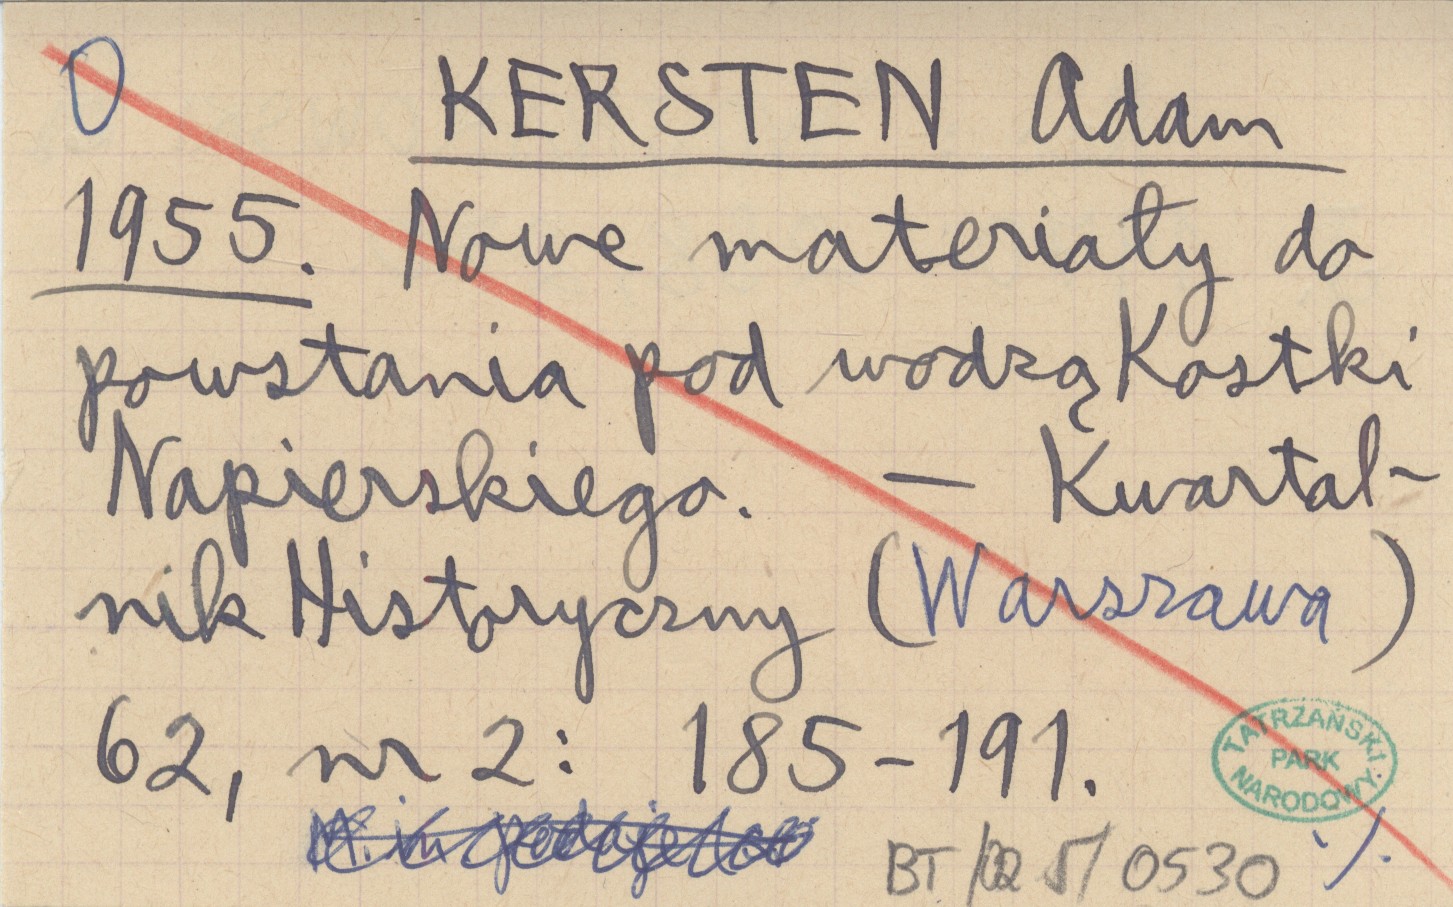 0
KERSTEN Adam
1955. Nowe materiały do
powstania pod wodzą Kostki
Napierskiego. — Kwartal-
nik Historyczny (Warszawa)
62, nr 2: 185-191.
TATRZAŃSKI
PARK
NARODOWY
BT / 0530 ./.